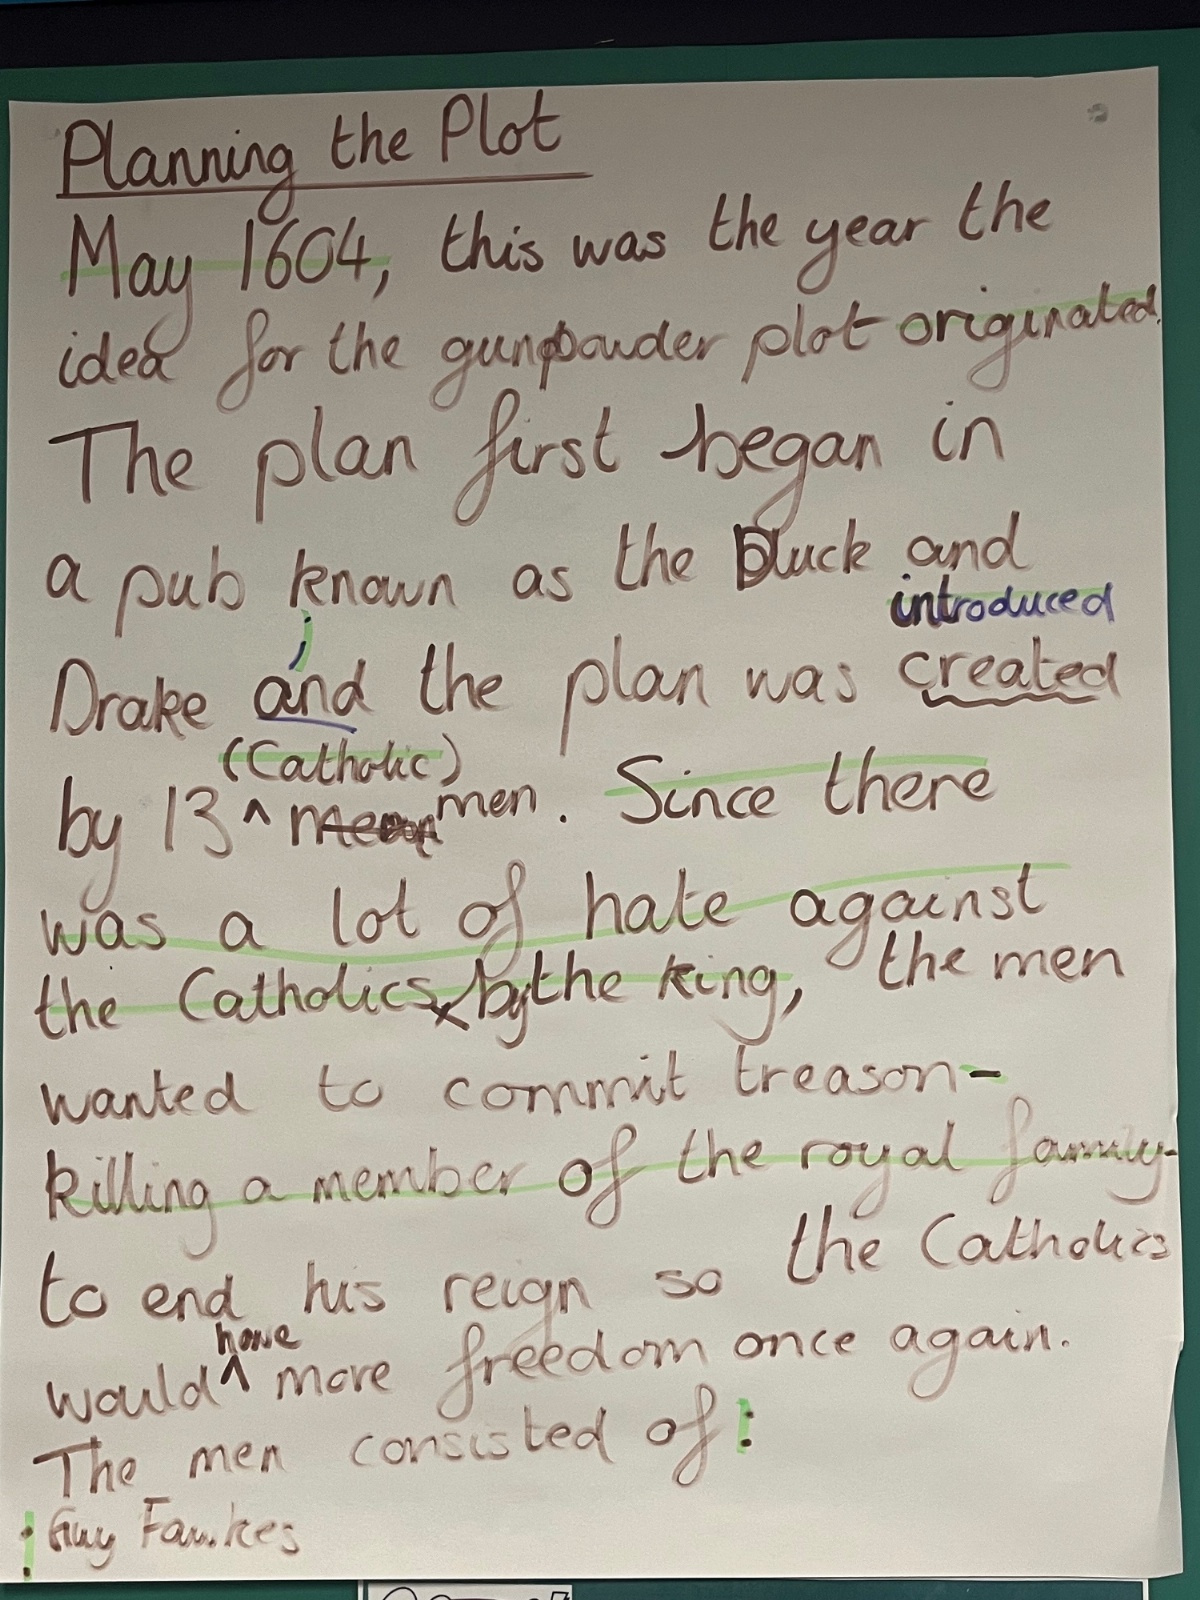 Planning the Plot
May 1604, this was the year the
idea for the gunpowder plot originated.
The plan first began in
a pub known as the Duck and
introduced
Drake ; and the plan was created
(Catholic)
by 13 ^ men .
Since there
was a lot of hate against
the Catholics by the king, the men
wanted to commit treason-
killing a member of the royal family-
to end his reign so the Catholics
have
would ^ more freedom once again.
The men consisted of:
: Guy Fawkes